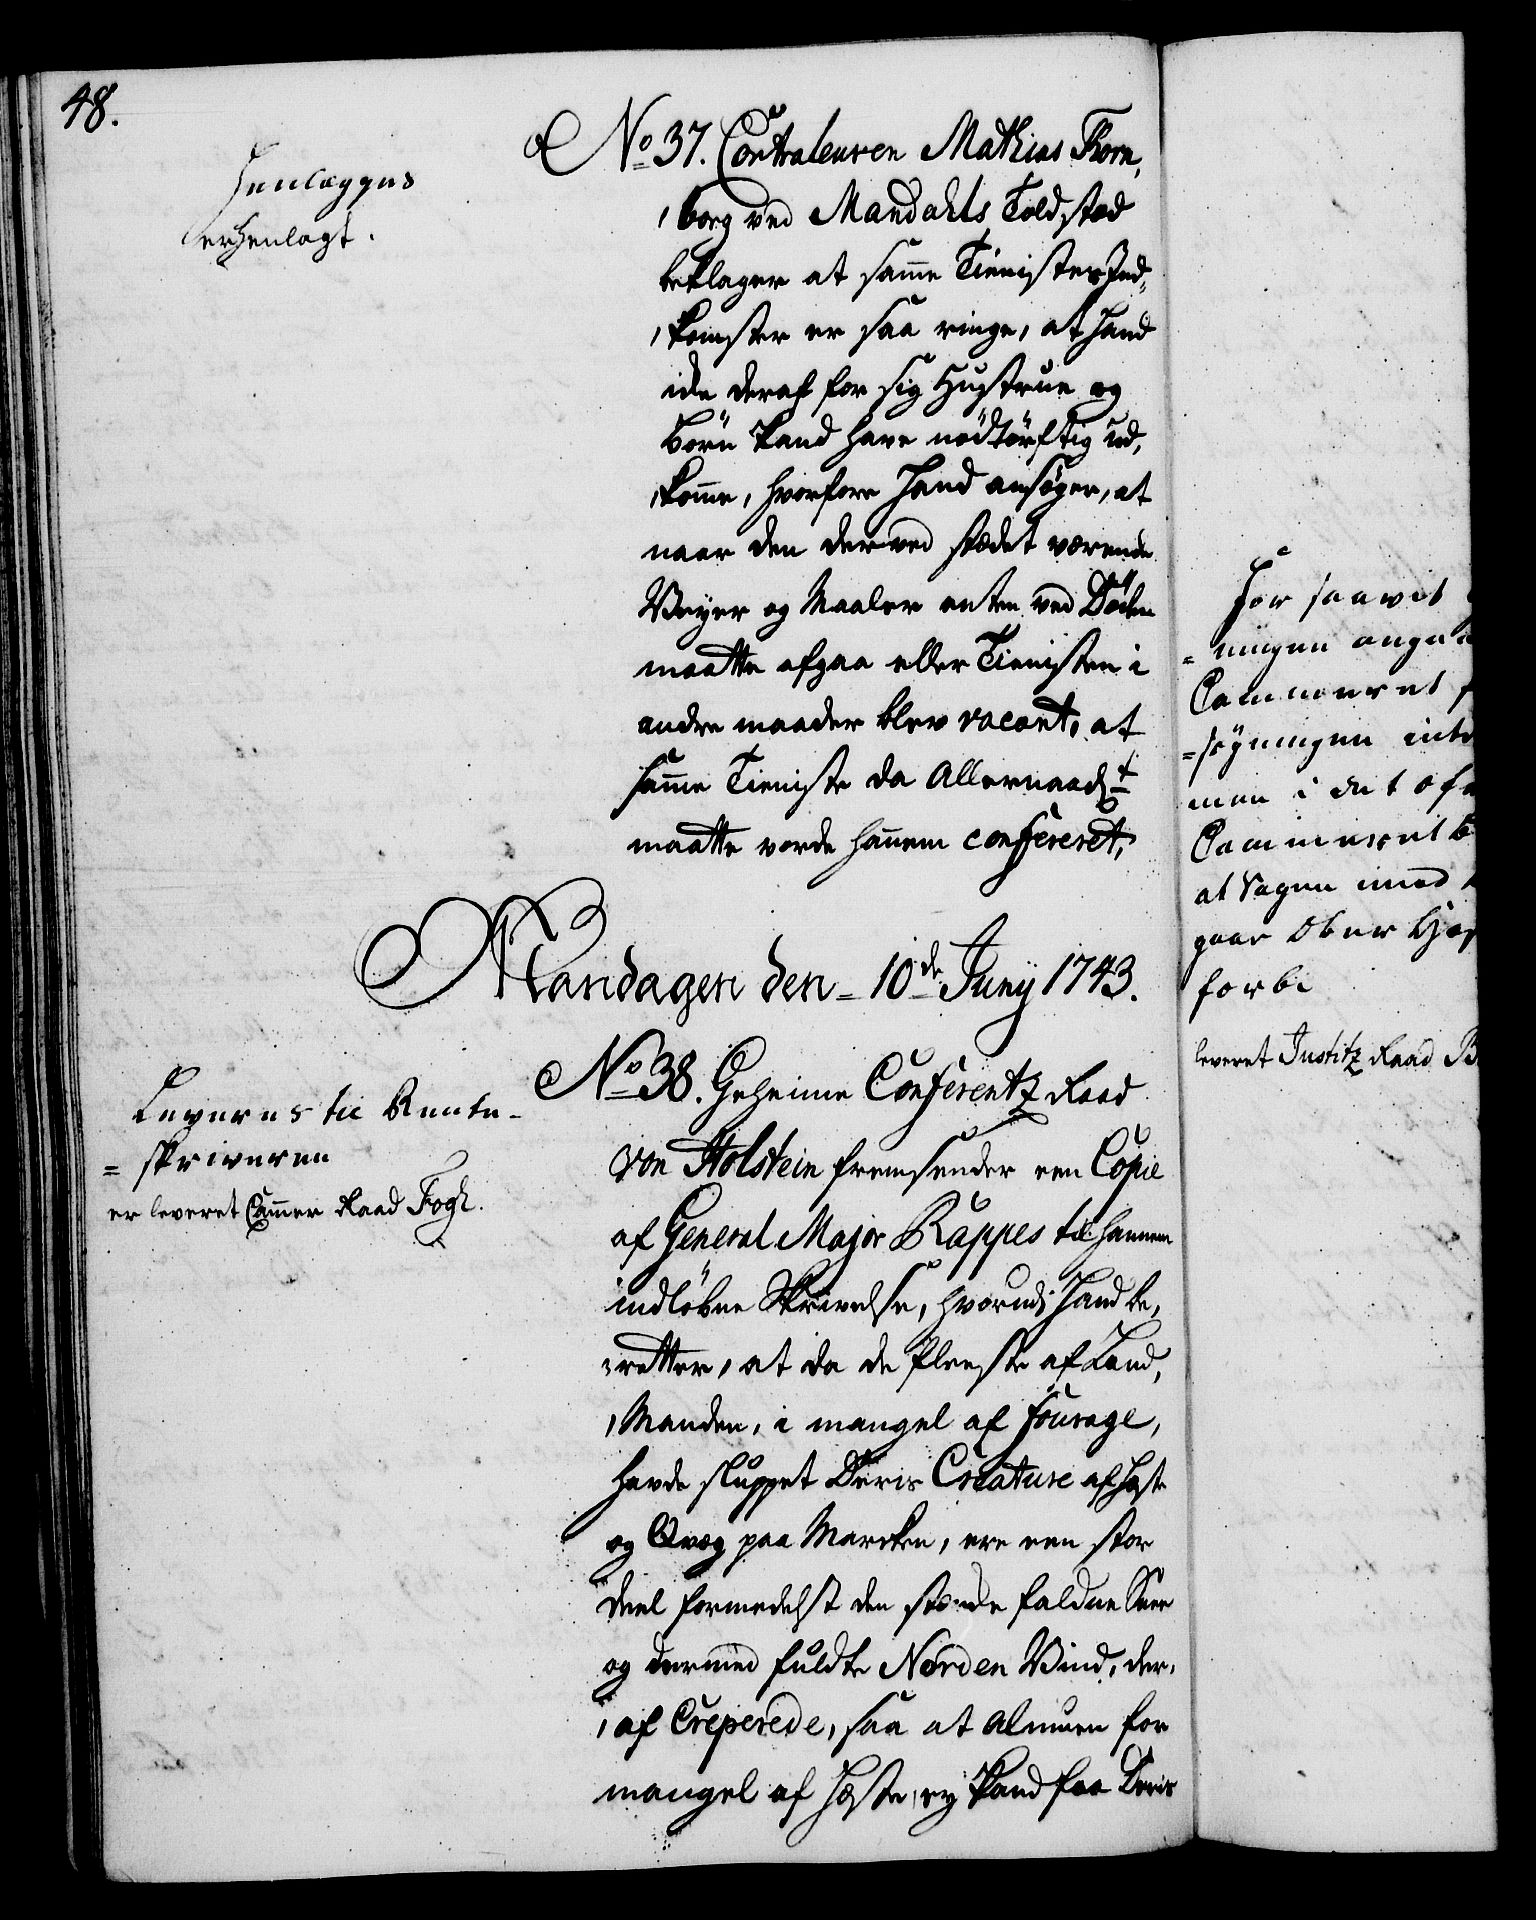 48.
Henlægges
er henlagt.
No 37. Contraleuren Mathias Thorn,
,borg ved Mandahls Told,stæd
beklager at samme Tienistes Ind,,
,komster er saa ringe, at hand
icke deraf for sig Hustrue og
Börn kand have nödtörftig ud,
,komme, hvorfore hand ansöger, at
naar den derved stædet værende
Veyer og Maaler enten ved Döden
maatte afgaa eller Tienisten i
andre maader blev vacant, at
samme Tieniste da Allernaadst
maatte vorde hannem confereret,
Mandagen den 10de Junij 1743.
Leveres til Rente-
= skriveren
er leveret Cammer Raad Fogh.
No 38. Geheime Conferentz Raad
von Holstein fremsender een Copie
af General Major Rappes til hannem
indlöbne Skrivelse, hvorudi hand be,
,retter, at da de fleeste af Land,
,Manden, i mangel af fourage,
havde sluppet Deris Creature af Heste
og Qvæg paa Marcken, ere een stor
deel formedelst den stærcke faldne Snee
og dermed fuldte Norden Vind, der,
,af Creperede, saa at Almuen for
mangel af Heste, ey kand faa Deris
For saavit
= ningen anga
Commercet
= søgningen int
men i det øf
Commercet
at Sagen med
gaar Ober Hof
forbi
leveret Justitz Raad